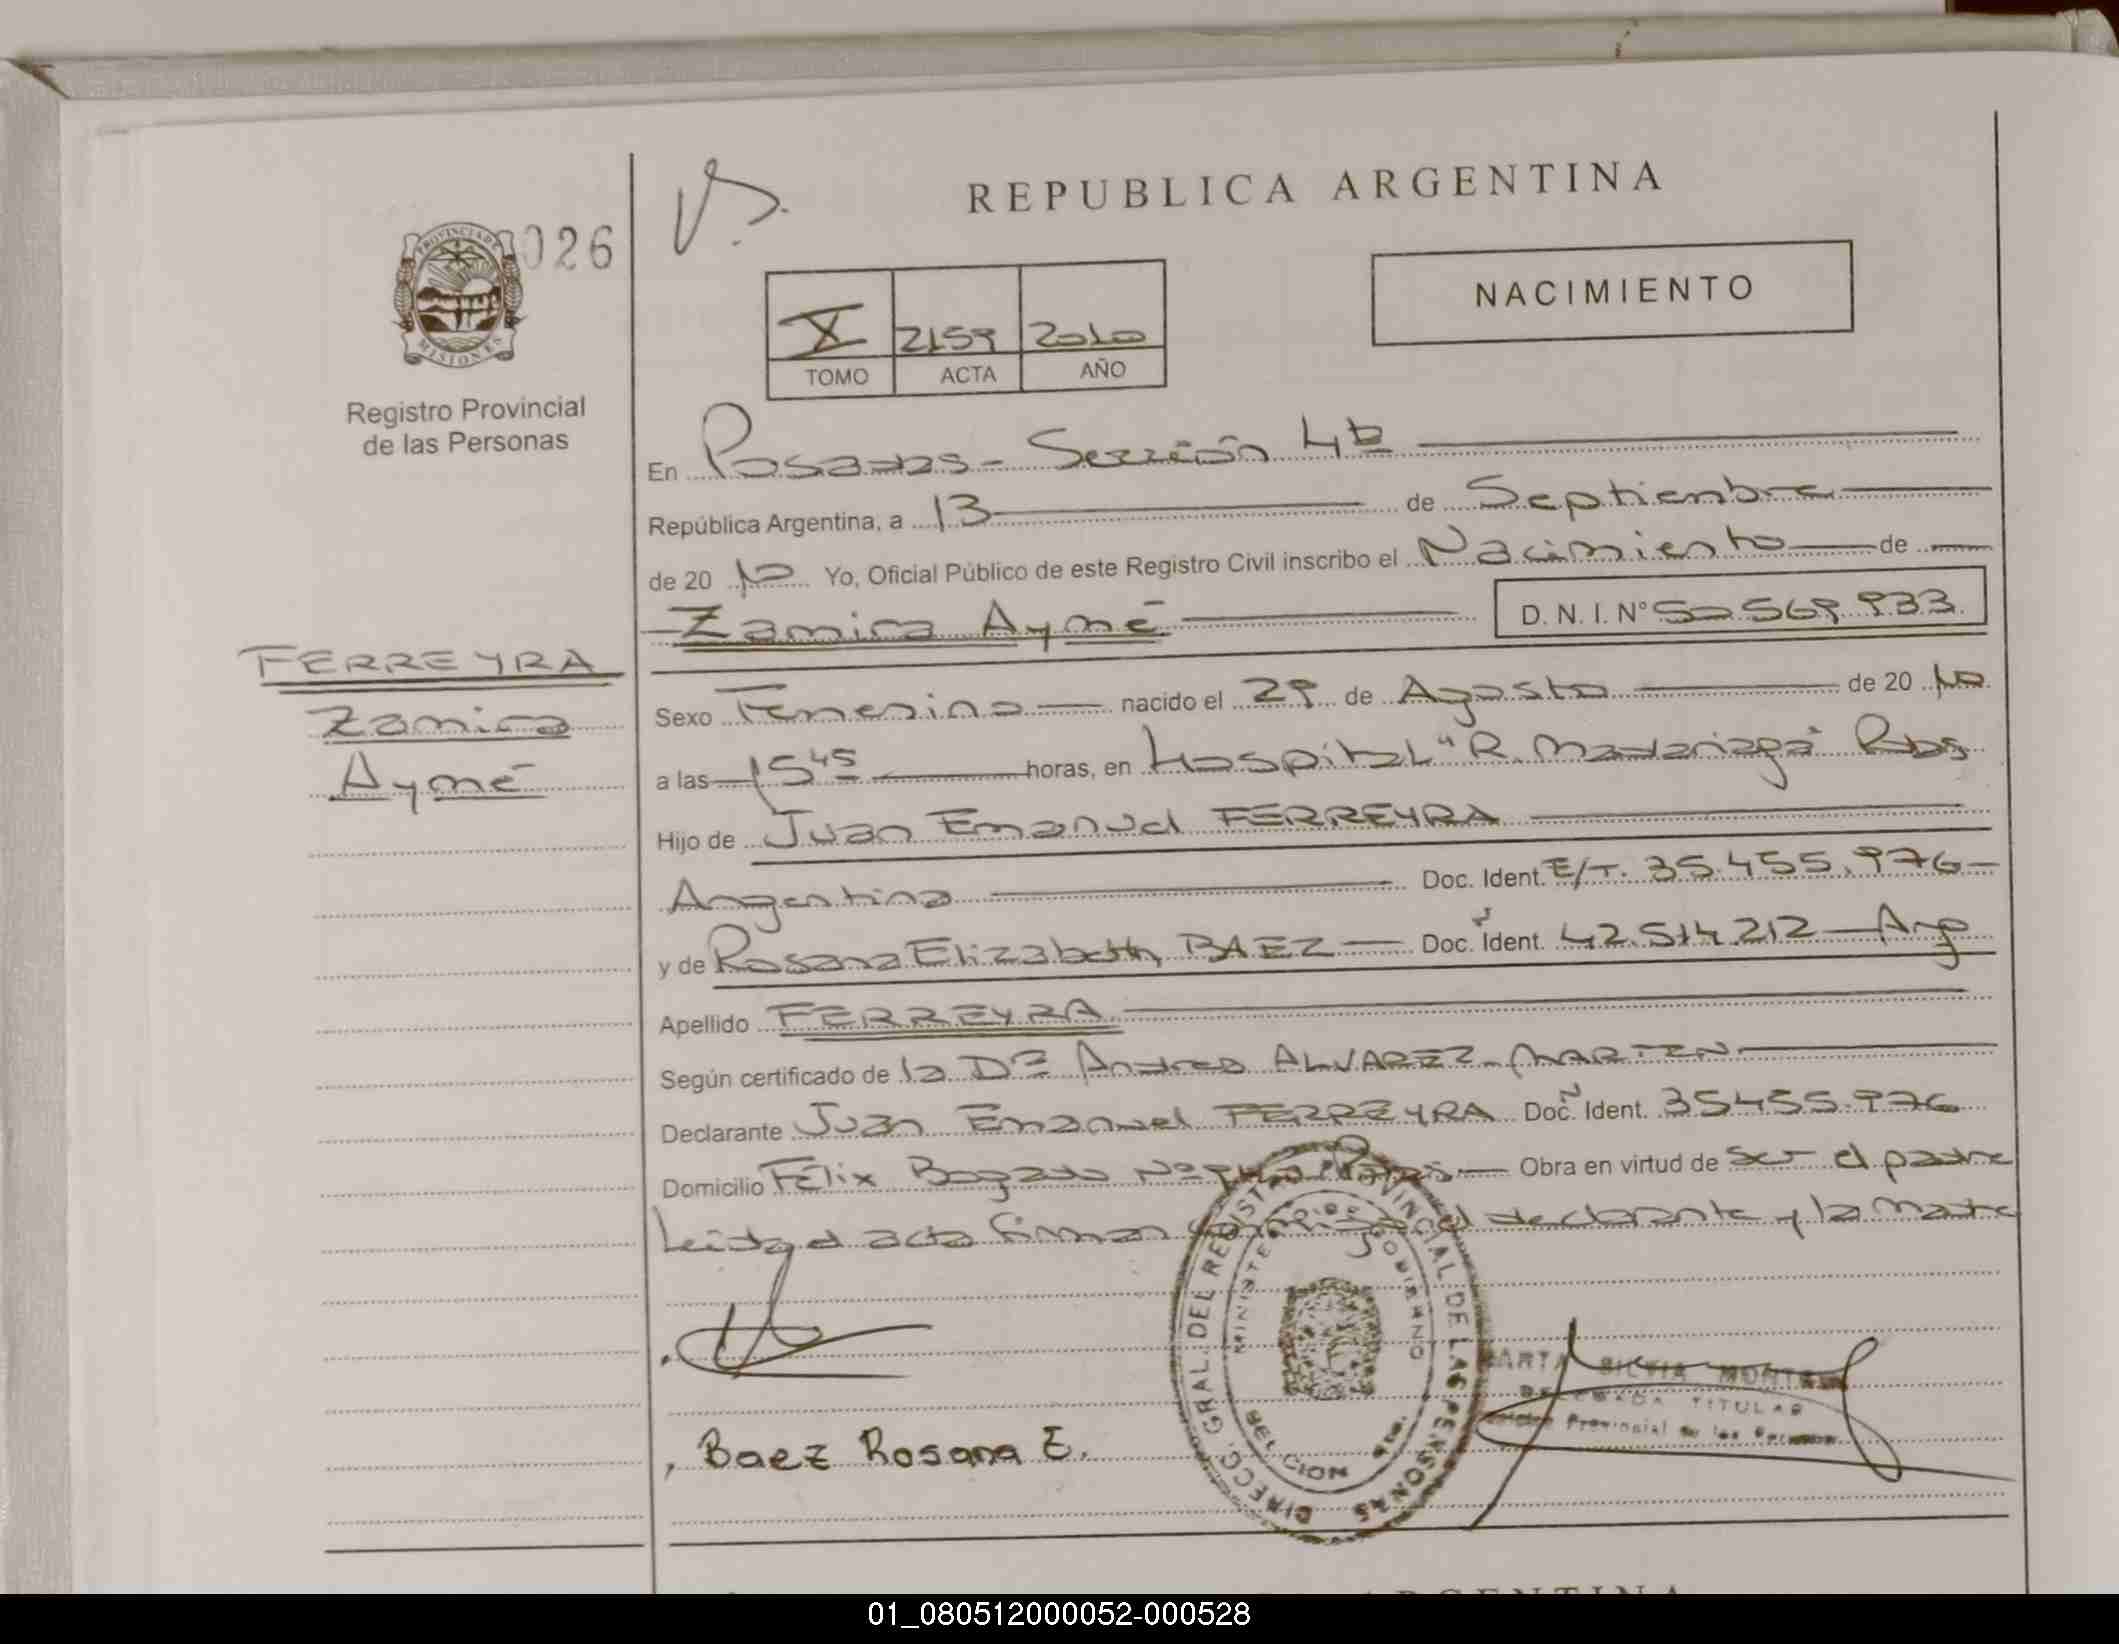 REPUBLICA ARGENTINA
026
PROVINCIA DE
MISIONES
NACIMIENTO
X 2159 2010
TOMO ACTA AÑO
Registro Provincial
de las Personas
En Posadas - Sección 4ta
República Argentina, a 13 de Septiembre
de 20 10 Yo, Oficial Público de este Registro Civil inscribo el Nacimiento de
Zamira Aymé D. N. I. N° 50 569 933
FERREYRA
Zamira
Aymé
Sexo Femenino nacido el 29 de Agosto de 20 10
a las 15 45 horas, en Hospital "R. Madariaga" Pdas
Hijo de Juan Emanuel FERREYRA
Argentina Doc. Ident. E/T. 35.455.976
y de Rosana Elizabeth BAEZ Doc. Ident. 42.514.212 Arg
Apellido FERREYRA
Según certificado de la Dra Andrea ALVAREZ MARTIN
Declarante Juan Emanuel FERREYRA Doc. Ident. 35455.976
Domicilio Félix Bogado Nº Pdas Obra en virtud de Ser el padre
Leida el acta firman conmigo el declarante y la madre
DIRECC. GRAL. DEL REGISTRO PROVINCIAL DE LAS PERSONAS
MINISTERIO DE GOBIERNO
Baez Rosana E.
MARTA SILVIA
DELEGADA TITULAR
Registro Provincial de las Personas
ARGENTINA
01_080512000052-000528